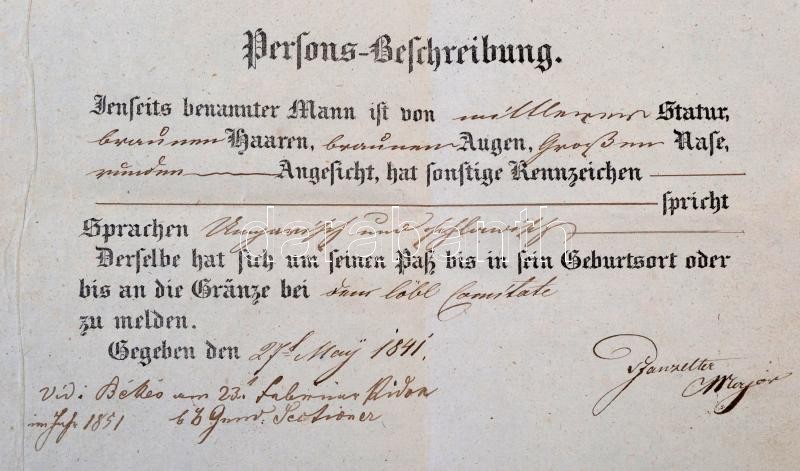 Persons-Beschreibung.
Jenseits benannter Mann ist von mittlerer Statur,
braunen Haaren, braunen Augen, Großen Nase,
runden Angesicht, hat sonstige Kennzeichen
spricht
Sprachen Ungarisch und schlawisch
darabanth
Derselbe hat sich um seinen Paß bis in sein Geburtsort oder
bis an die Gränze bei dem löbl Comitate
zu melden.
Gegeben den 27t May 1841.
Major
Vidi Békés am 23t Februar
im Jahr 1851